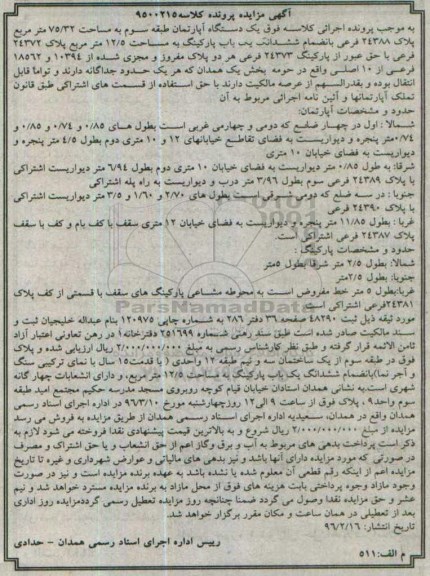 آگهی مزایده پرونده کلاسه ۹۵۰۰۲۱۵
به موجب پرونده اجرائی کلاسه فوق یک دستگاه آپارتمان طبقه سوم به مساحت ۷۵/۳۲ متر مربع
پلاک ۲۴۳۸۸ فرعی بانضمام ششدانگ یک باب پارکینگ به مساحت ۱۲/۵ متر مربع پلاک ۲۴۳۷۲
فرعی با حق عبور از پارکینگ ۲۴۳۷۳ فرعی هر دو پلاک مفروز و مجزی شده از ۱۰۳۹۴ و ۱۸۵۶۲
فرعی از ۱۰ اصلی واقع در حومه بخش یک همدان که هر یک حدود جداگانه دارند و تواما قابل
انتقال بوده و بقدرالسهم از عرصه مالکیت دارند با حق استفاده از قسمت های اشتراکی طبق قانون
تملک آپارتمانها و آئین نامه اجرائی مربوط به آن
حدود و مشخصات آپارتمان:
شمالا: اول در چهار ضلع که دومی و چهارمی غربی است بطول های ۰/۸۵ و ۰/۷۴ و ۰/۸۵ و
۰/۷۴متر پنجره و دیواریست به فضای تقاطع خیابانهای ۱۲ و ۱۰ متری دوم بطول ۴/۵ متر پنجره و
دیواریست به فضای خیابان ۱۰ متری
شرقا: به طول ۰/۸۵ متر دیواریست به فضای خیابان ۱۰ متری دوم بطول ۶/۹۴ متر دیواریست اشتراکی
با پلاک ۲۴۳۸۹ فرعی سوم بطول ۳/۹۶ متر درب و دیواریست به راه پله اشتراکی
جنوبا: در سه ضلع که دومی شرقی است بطول های ۲/۷۰ و ۱/۶۰ و ۳/۵ متر دیواریست اشتراکی
با پلاک ۲۴۳۹۰ فرعی
غربا: بطول ۱۱/۸۵ متر پنجره و دیواریست به فضای خیابان ۱۲ متری سقف با کف بام و کف با سقف
پلاک ۲۴۳۸۷ فرعی اشتراکی است.
حدود و مشخصات پارکینگ:
شمالا: بطول ۲/۵ متر شرقا بطول ۵متر
جنوبا: بطول ۲/۵متر
غربا: بطول ۵ متر خط مفروض است به محوطه مشاعی پارکینگ های سقف با قسمتی از کف پلاک
۲۴۳۸۱فرعی اشتراکی است.
مورد ثبت ذیل ثبت ۴۸۲۹۰ صفحه ۳۶ دفتر ۲۸۶ به شماره چاپی ۲۵۰۹۷۵ بنام عبداله خلیجیان ثبت و
سند مالکیت صادر شده است طبق سند رهنی شماره ۲۵۱۶۹۹ دفترخانه ۱ در رهن تعاونی اعتبار آزاد
ثامن الائمه قرار گرفته و طبق نظر کارشناس رسمی به مبلغ ۲/۰۰۰/۰۰۰/۰۰۰ ریال ارزیابی شده و پلاک
فوق در طبقه سوم از یک ساختمان سه و نیم طبقه ۱۲ واحدی (با قدمت ۱۵ سال با نمای ترکیبی سنگ
و آجر نما)بانضمام ششدانگ یک باب پارکینگ به مساحت ۱۲/۵ متر مربع، و دارای انشعابات چهار گانه
شهری است.به نشانی همدان استادان خیابان قیام کوچه روبروی مسجد مدرسه حکیم مجتمع امید طبقه
سوم واحد۹ ، پلاک فوق از ساعت ۹ الی ۱۲ روزچهارشنبه مورخ ۹۶/۳/۱۰ در اداره اجرای اسناد رسمی
همدان واقع در همدان، سعیدیه اداره اجرای اسناد رسمی همدان از طریق مزایده به فروش می رسد
مزایده از مبلغ ۲/۰۰۰/۰۰۰/۰۰۰ ریال شروع و به بالاترین قیمت پیشنهادی نقدا فروخته می شود لازم به
ذکر است پرداخت بدهی های مربوط به آب و برق وگاز اعم از حق انشعاب و یا حق اشتراک و مصرف
در صورتی که مورد مزایده دارای آنها باشد و نیز بدهی های مالیاتی و عوارض شهرداری و غیره تا تاریخ
مزایده اعم از اینکه رقم قطعی آن معلوم شده یا نشده باشد به عهده برنده مزایده است و نیز در صورت
وجود مازاد وجوه پرداختی بابت هزینه های فوق از محل مازاد به برنده مزایده مسترد خواهد شد و نیم
عشر و حق مزایده نقدا وصول می گردد ضمنا چنانچه روز مزایده تعطیل رسمی گرددمزایده روز اداری
بعد از تعطیلی در همان ساعت و مکان مقرر برگزار خواهد شد.
تاریخ انتشار: ۹۶/۲/۱۶
رییس اداره اجرای اسناد رسمی همدان - حدادی
م الف: ۵۱۱